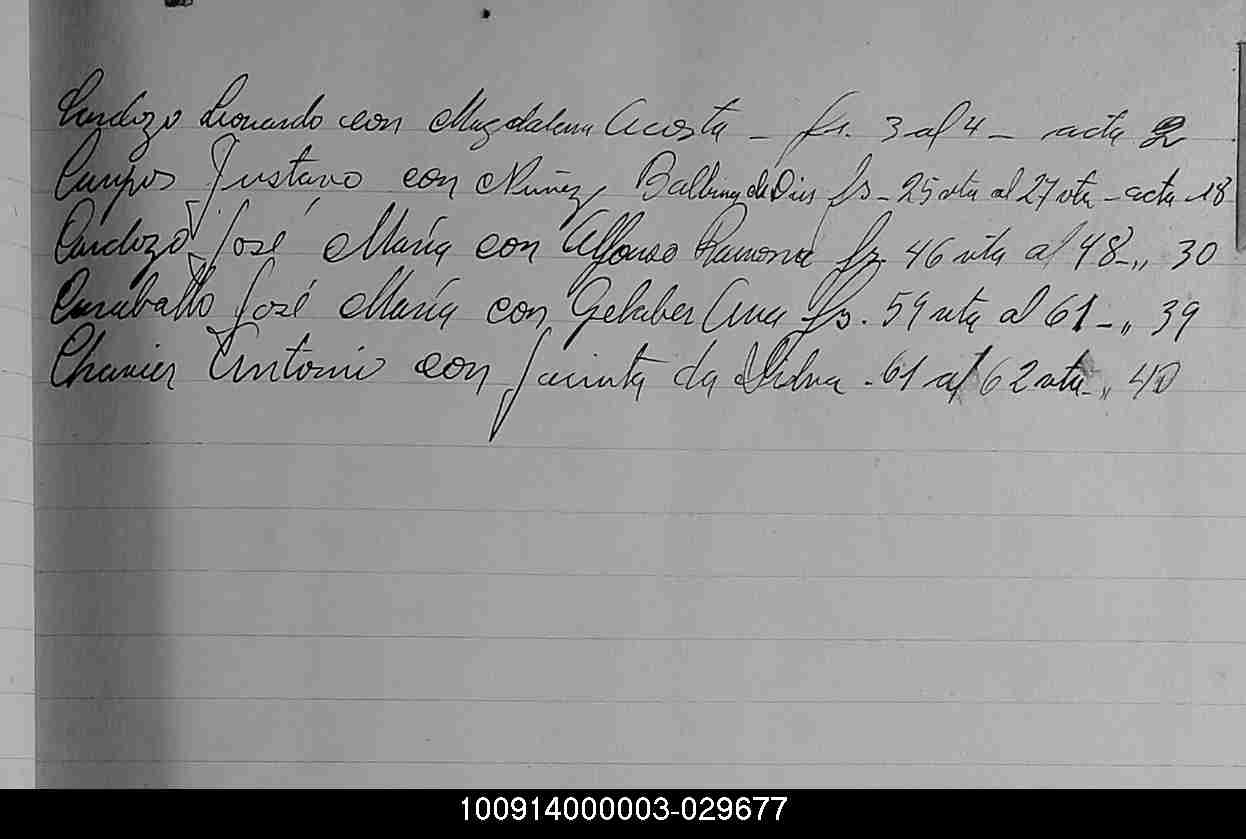 Cardozo Leonardo con Magdalena Acosta - fs. 3 al 4 - acta 2
Campos Gustavo con Nuñez, Balbina de Dios fs - 25 vta al 27 vta - acta 18
Cardozo José María con Alfonso Ramona fs. 46 vta al 48 - „ 30
Caraballo José María con Gelaber Ana fs. 59 vta al 61 - „ 39
Chavier Antonio con Jacinta da Silva - 61 al 62 vta - „ 40
100914000003-029677